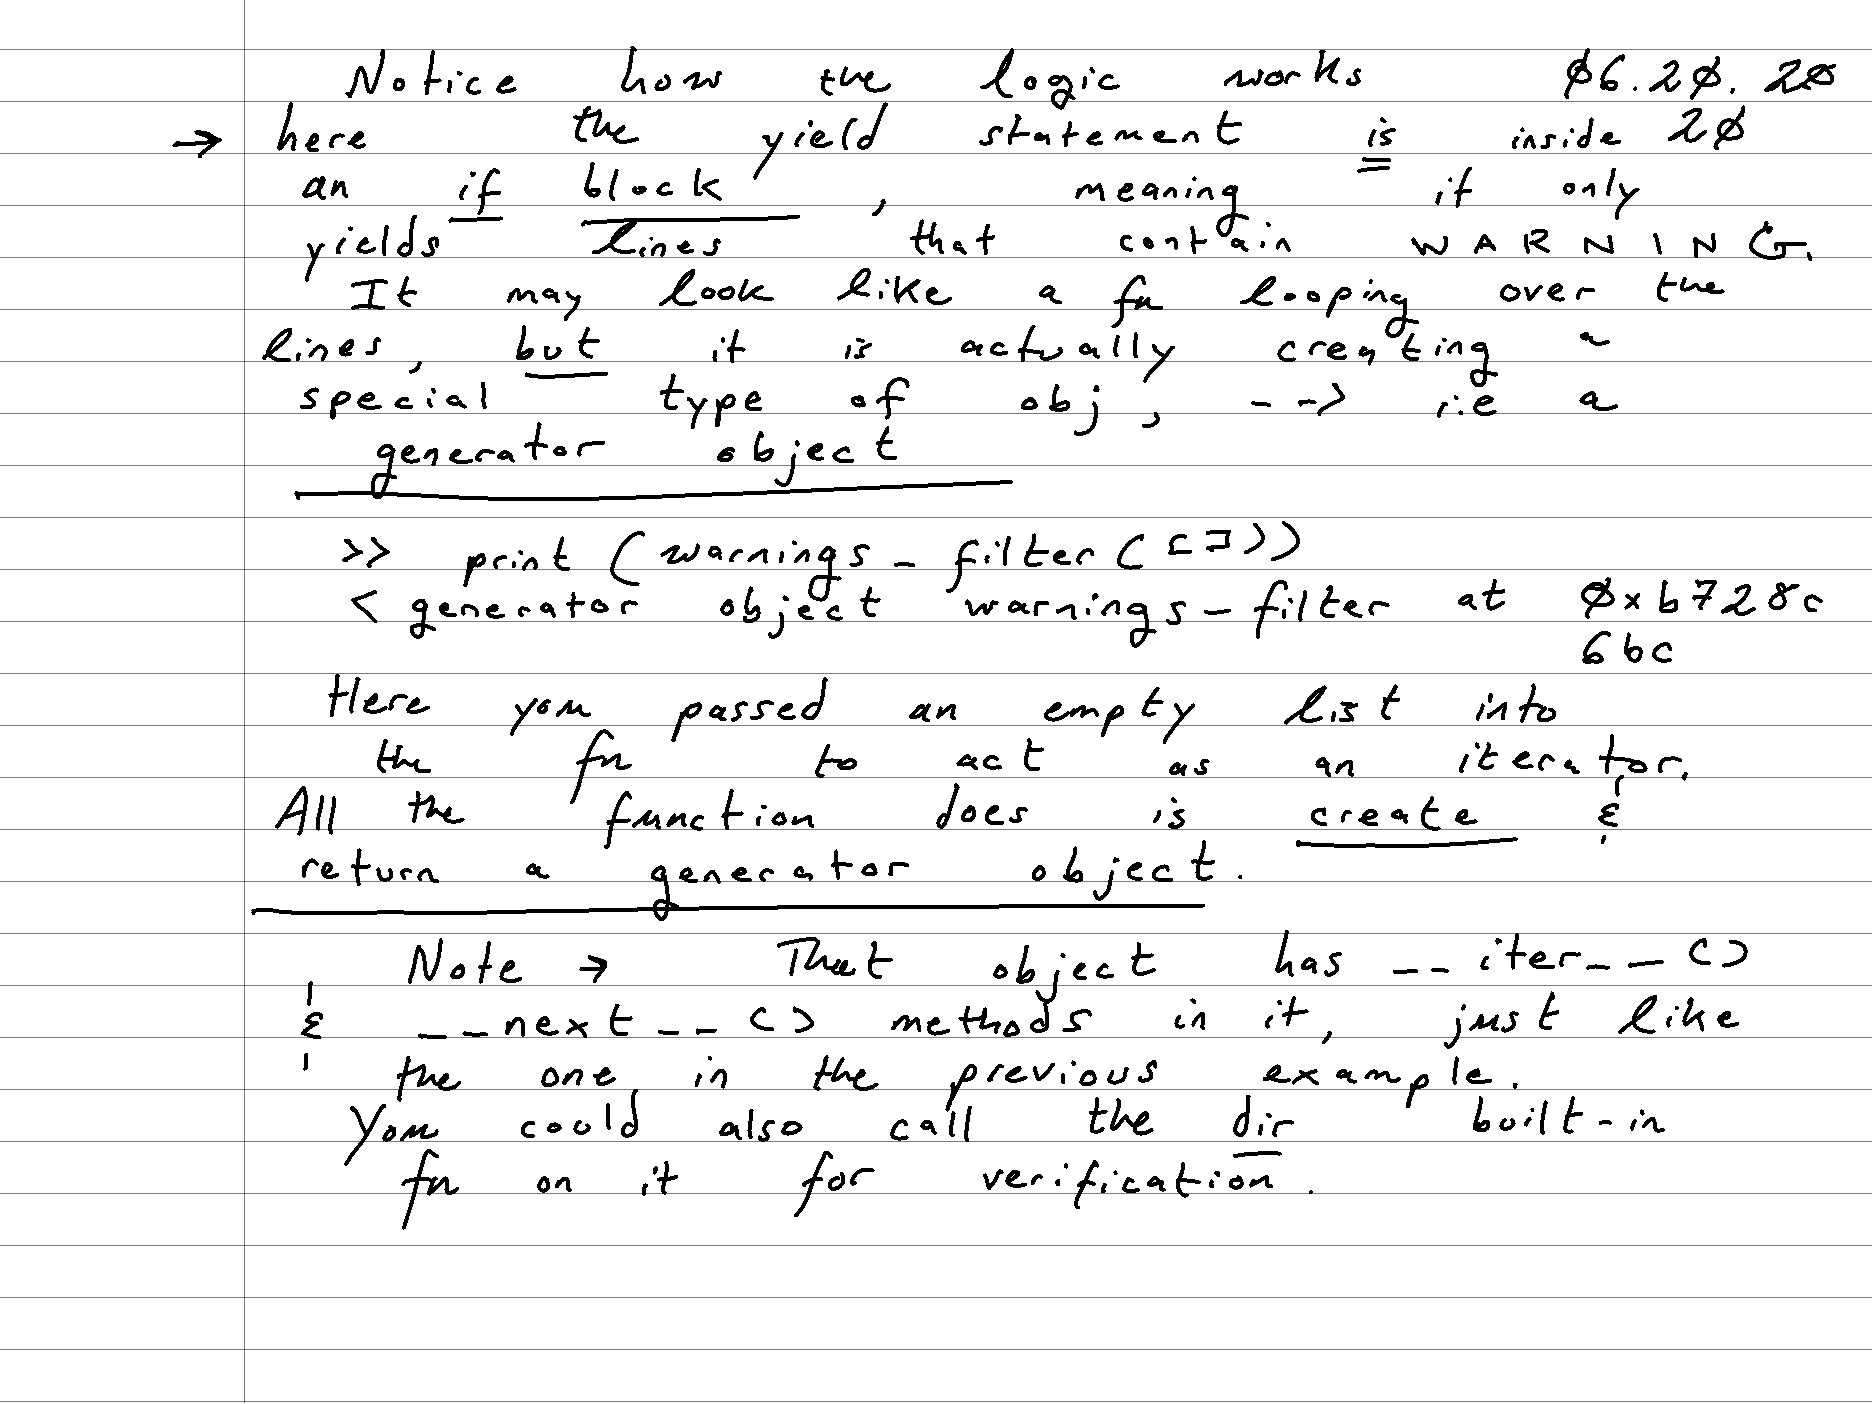 Notice how the logic works 06.20.20
→ here the yield statement is inside 20
an if block, meaning it only
yields lines that contain WARNING.
It may look like a fn looping over the
lines, but it is actually creating a
special type of obj, --> i.e a
generator object
>> print (warnings_filter([]))
< generator object warnings_filter at 0xb728c
6bc
Here you passed an empty list into
the fn to act as an iterator.
All the function does is create &
return a generator object.
Note → That object has __iter__()
& __next__() methods in it, just like
the one in the previous example.
You could also call the dir built-in
fn on it for verification.